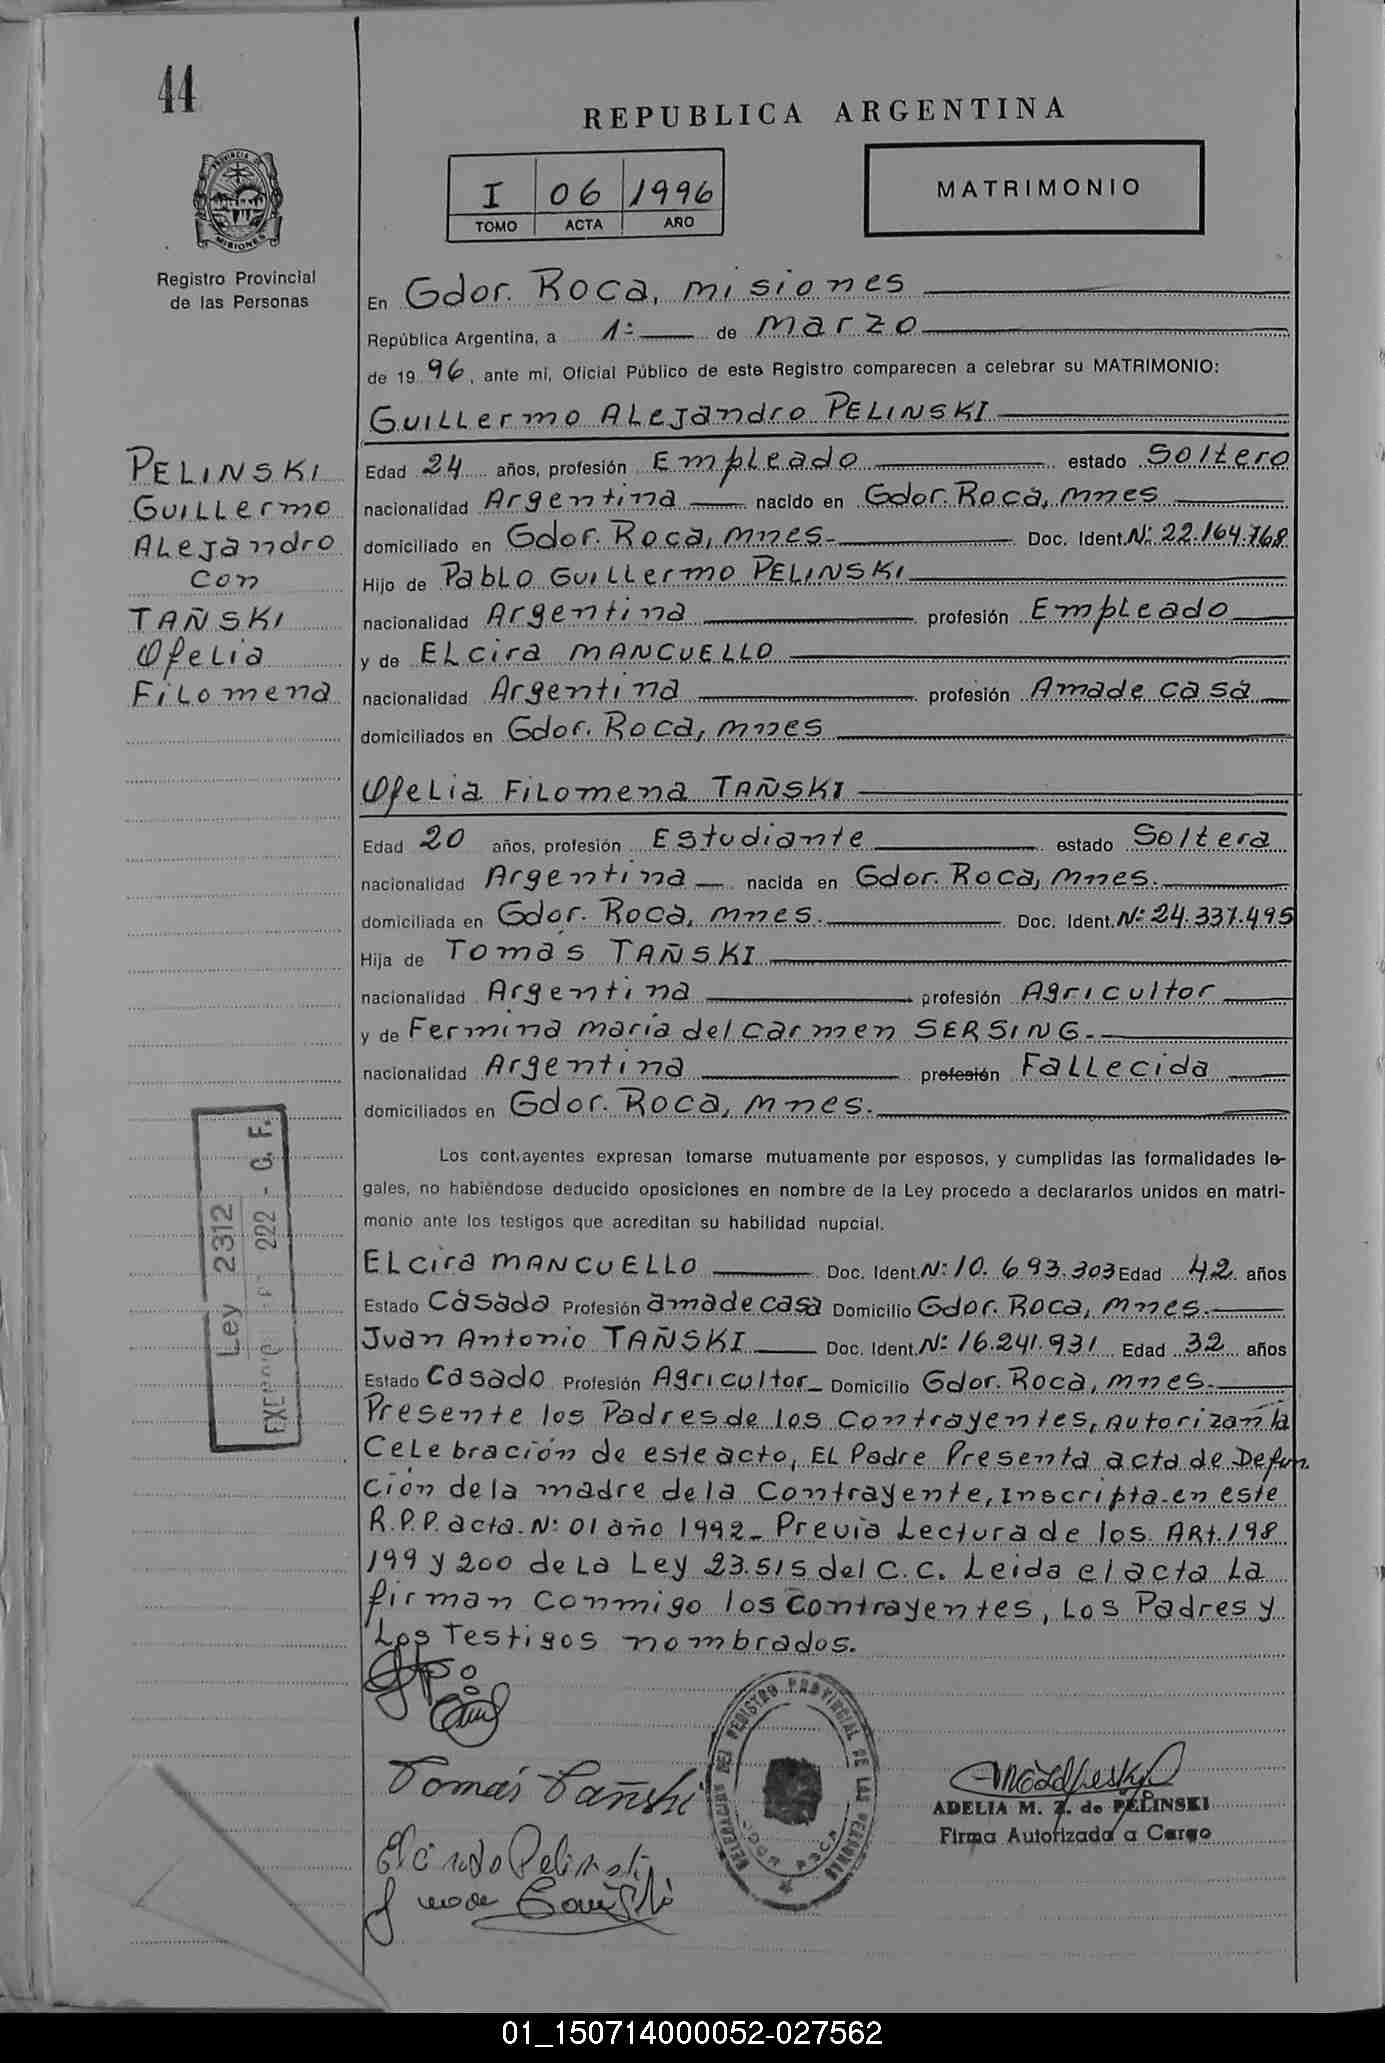 44
REPUBLICA ARGENTINA
PROVINCIA DE
MISIONES
Registro Provincial
de las Personas
I 06 1996
TOMO ACTA AÑO
MATRIMONIO
En Gdor. Roca, misiones
República Argentina, a 1º de marzo
de 1996, ante mí, Oficial Público de este Registro comparecen a celebrar su MATRIMONIO:
Guillermo Alejandro PELINSKI
PELINSKI
Guillermo
Alejandro
con
TAÑSKI
Ofelia
Filomena
Edad 24 años, profesión Empleado estado Soltero
nacionalidad Argentina nacido en Gdor. Roca, mnes
domiciliado en Gdor. Roca, mnes. Doc. Ident. Nº 22.164.768
Hijo de Pablo Guillermo PELINSKI
nacionalidad Argentina profesión Empleado
y de Elcira MANCUELLO
nacionalidad Argentina profesión Amade casa
domiciliados en Gdor. Roca, mnes
Ofelia Filomena TAÑSKI
Edad 20 años, profesión Estudiante estado Soltera
nacionalidad Argentina nacida en Gdor. Roca, mnes.
domiciliada en Gdor. Roca, mnes. Doc. Ident. Nº 24.337.495
Hija de Tomás TAÑSKI
nacionalidad Argentina profesión Agricultor
y de Fermina maria del carmen SERSING.
nacionalidad Argentina profesión Fallecida
domiciliados en Gdor. Roca, mnes.
Los contrayentes expresan tomarse mutuamente por esposos, y cumplidas las formalidades le-
gales, no habiéndose deducido oposiciones en nombre de la Ley procedo a declararlos unidos en matri-
monio ante los testigos que acreditan su habilidad nupcial.
Ley 2312
222 - G. F.
Elcira MANCUELLO Doc. Ident. Nº 10.693.303 Edad 42 años
Estado Casada Profesión amadecasa Domicilio Gdor. Roca, mnes.
Juan Antonio TAÑSKI Doc. Ident. Nº 16.241.931 Edad 32 años
Estado Casado Profesión Agricultor Domicilio Gdor. Roca, mnes.
Presente los Padres de los contrayentes, autorizan la
Celebración de este acto, El Padre Presenta acta de Defun
ción de la madre de la Contrayente, inscripta en este
R.P.P. acta Nº 01 año 1992_ Previa Lectura de los ARt. 198
199 y 200 de La Ley 23.515 del C.C. Leida el acta La
firman conmigo los contrayentes, Los Padres y
Los Testigos nombrados.
Tomás Tañski
DELEGACION DEL REGISTRO PROVINCIAL DE LAS PERSONAS
GDOR ROCA
ADELIA M. Z. de PELINSKI
Firma Autorizada a Cargo
01_150714000052-027562